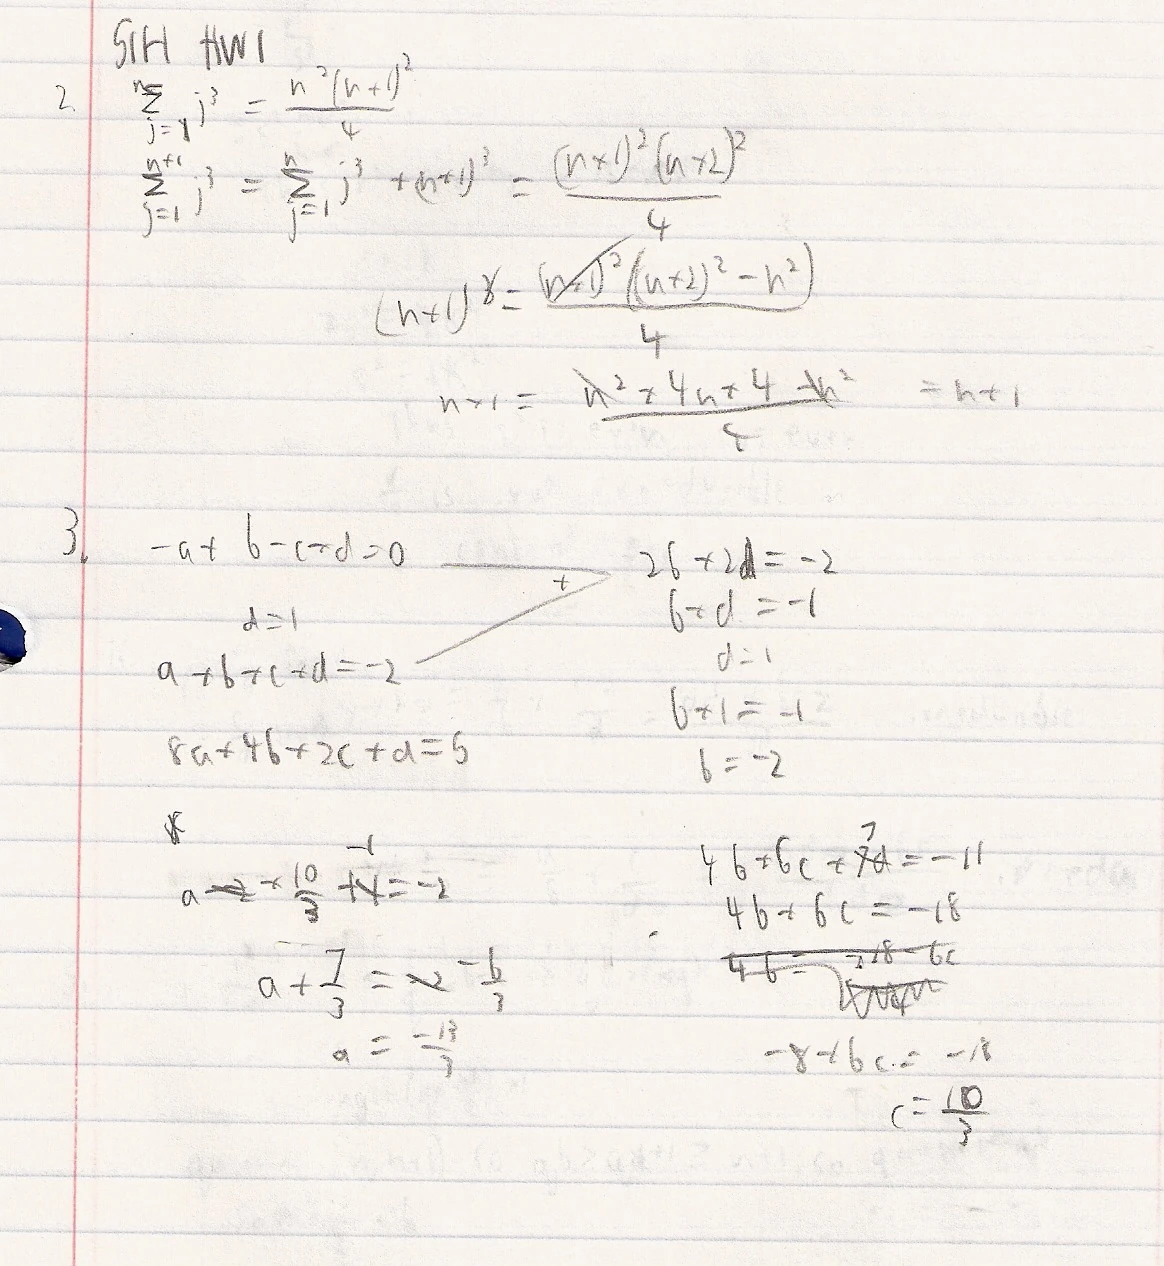 SIH HW1
2. \sum_{j=1}^{n} j^3 = \frac{n^2(n+1)^2}{4}
\sum_{j=1}^{n+1} j^3 = \sum_{j=1}^{n} j^3 + (n+1)^3 = \frac{(n+1)^2(n+2)^2}{4}
(n+1)^3 = \frac{(n+1)^2((n+2)^2 - n^2)}{4}
n+1 = \frac{n^2 + 4n + 4 - n^2}{4} = n+1
3. -a + b - c + d = 0
d = 1
a + b + c + d = -2
8a + 4b + 2c + d = 5
+
2b + 2d = -2
b + d = -1
d = 1
b + 1 = -1
b = -2
a - 2 + \frac{10}{3} + 1 = -2
-1
a + \frac{7}{3} = -\frac{6}{3}
a = \frac{-13}{3}
4b + 6c + 7d = -11
7
4b + 6c = -18
4b = -18 - 6c
-8 + 6c = -18
c = \frac{10}{3}